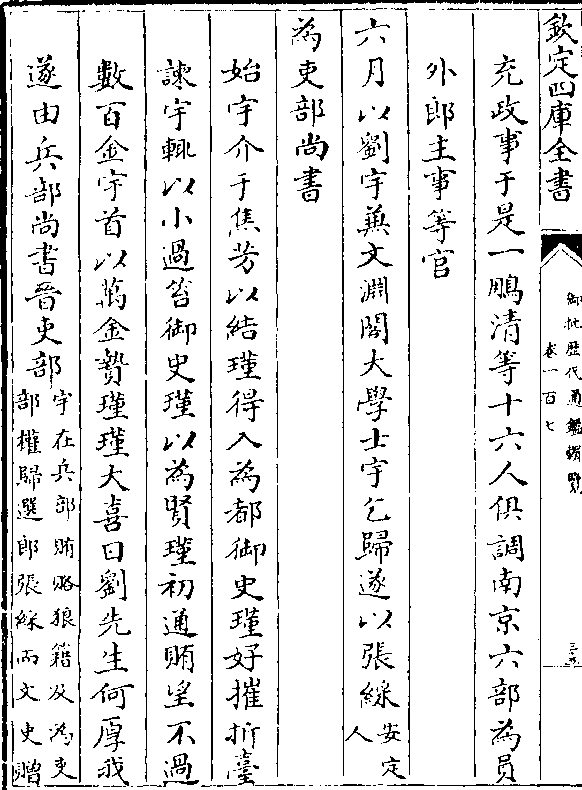 欽定四庫全書
御批歷代通鑑輯覽
卷一百七
充政事于是一鵬清等十六人俱調南京六部為員
外郎主事等官
六月以劉宇兼文淵閣大學士宇乞歸遂以張綵安定人
為吏部尚書
始宇介于焦芳以結瑾得入為都御史瑾好摧折臺
諫宇輒以小過笞御史瑾以為賢瑾初通賄望不過
數百金宇首以萬金贄瑾瑾大喜曰劉先生何厚我
遂由兵部尚書晉吏部
宇在兵部賄賂狼籍及為吏
部權歸選郎張綵而文吏贈